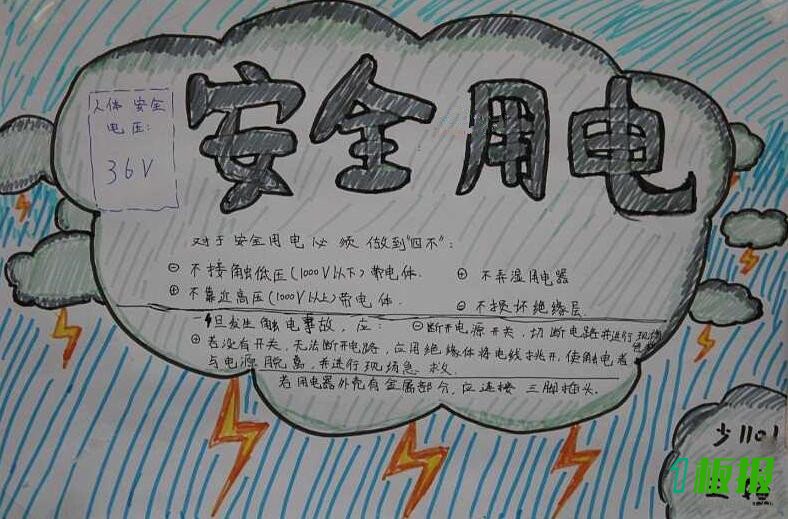 安全用电
人体 安全
电压:
36V
对于安全用电必须做到"四不":
⊖ 不接触低压(1000V以下)带电体.
⊕ 不弄湿用电器
⊕ 不靠近高压(1000V以上)带电体.
⊖ 不损坏绝缘层.
一旦发生触电事故,应: ⊖断开电源开关,切断电路并进行现场急救
⊕ 若没有开关,无法断开电路,应用绝缘体将电线挑开,使触电者
与电源脱离,并进行现场急救.
若用电器外壳有金属部分,应连接三脚插头.
少1101
1板报